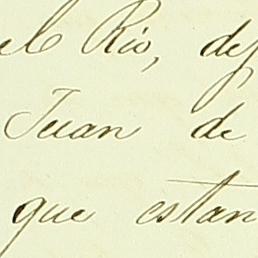 el Rio, de
Juan de
que estan